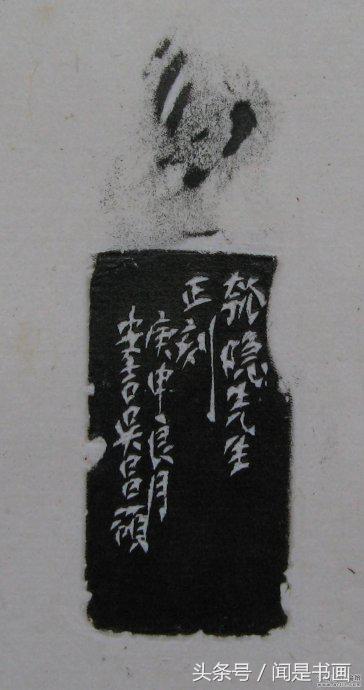 瓠隐先生
正刻
庚申良月
安吉吳昌碩
头条号 / 闻是书画